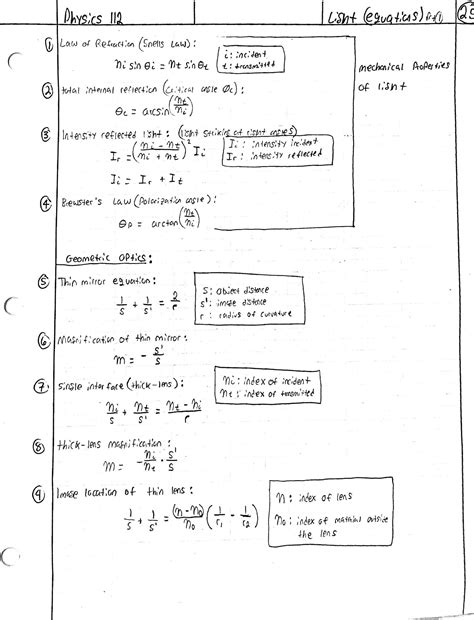 Physics 112
Light (equations) pt(1)
① Law of Refraction (Snells Law):
ni sin θi = nt sin θt
i: incident
t: transmitted
mechanical properties
of light
② total internal reflection (critical angle θc):
θc = arcsin(nt/ni)
③ Intensity reflected light: (light strikes at right angles)
Ir = ((ni - nt)/(ni + nt))² Ii
Ii: intensity incident
Ir: intensity reflected
Ii = Ir + It
④ Brewster's Law (Polarization angle):
θp = arctan(nt/ni)
Geometric Optics:
⑤ Thin mirror equation:
1/s + 1/s' = 2/r
s: object distance
s': image distance
r: radius of curvature
⑥ Magnification of thin mirror:
m = - s'/s
⑦ single interface (thick-lens):
ni/s + nt/s' = (nt - ni)/r
ni: index of incident
nt: index of transmitted
⑧ thick-lens magnification:
m = - ni/nt · s'/s
⑨ Image location of thin lens:
1/s + 1/s' = (n - n0)/n0 (1/r1 - 1/r2)
n: index of lens
n0: index of material outside
the lens